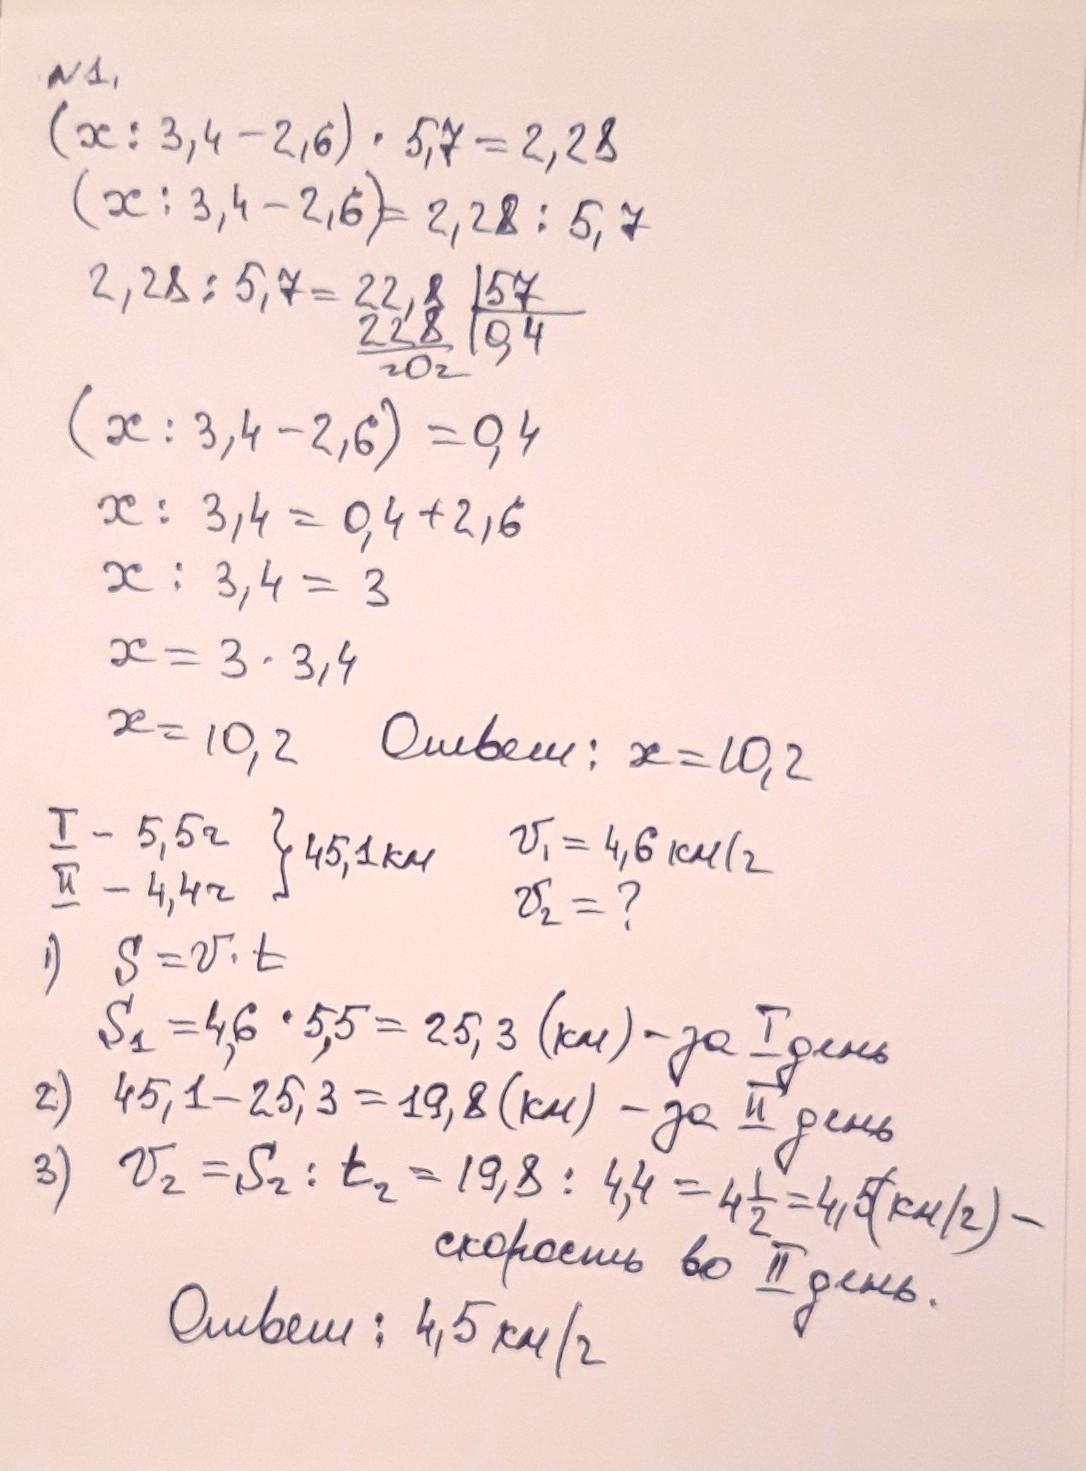 №1.
(x : 3,4 - 2,6) · 5,7 = 2,28
(x : 3,4 - 2,6) = 2,28 : 5,7
2,28 : 5,7 = 22,8 | 57
228 | 0,4
0
(x : 3,4 - 2,6) = 0,4
x : 3,4 = 0,4 + 2,6
x : 3,4 = 3
x = 3 · 3,4
x = 10,2 Ответ: x = 10,2
I - 5,5ч } 45,1 км v₁ = 4,6 км/ч
II - 4,4ч v₂ = ?
1) S = v · t
S₁ = 4,6 · 5,5 = 25,3 (км) - за I день
2) 45,1 - 25,3 = 19,8 (км) - за II день
3) v₂ = S₂ : t₂ = 19,8 : 4,4 = 4 1/2 = 4,5 (км/ч) -
скорость во II день.
Ответ: 4,5 км/ч